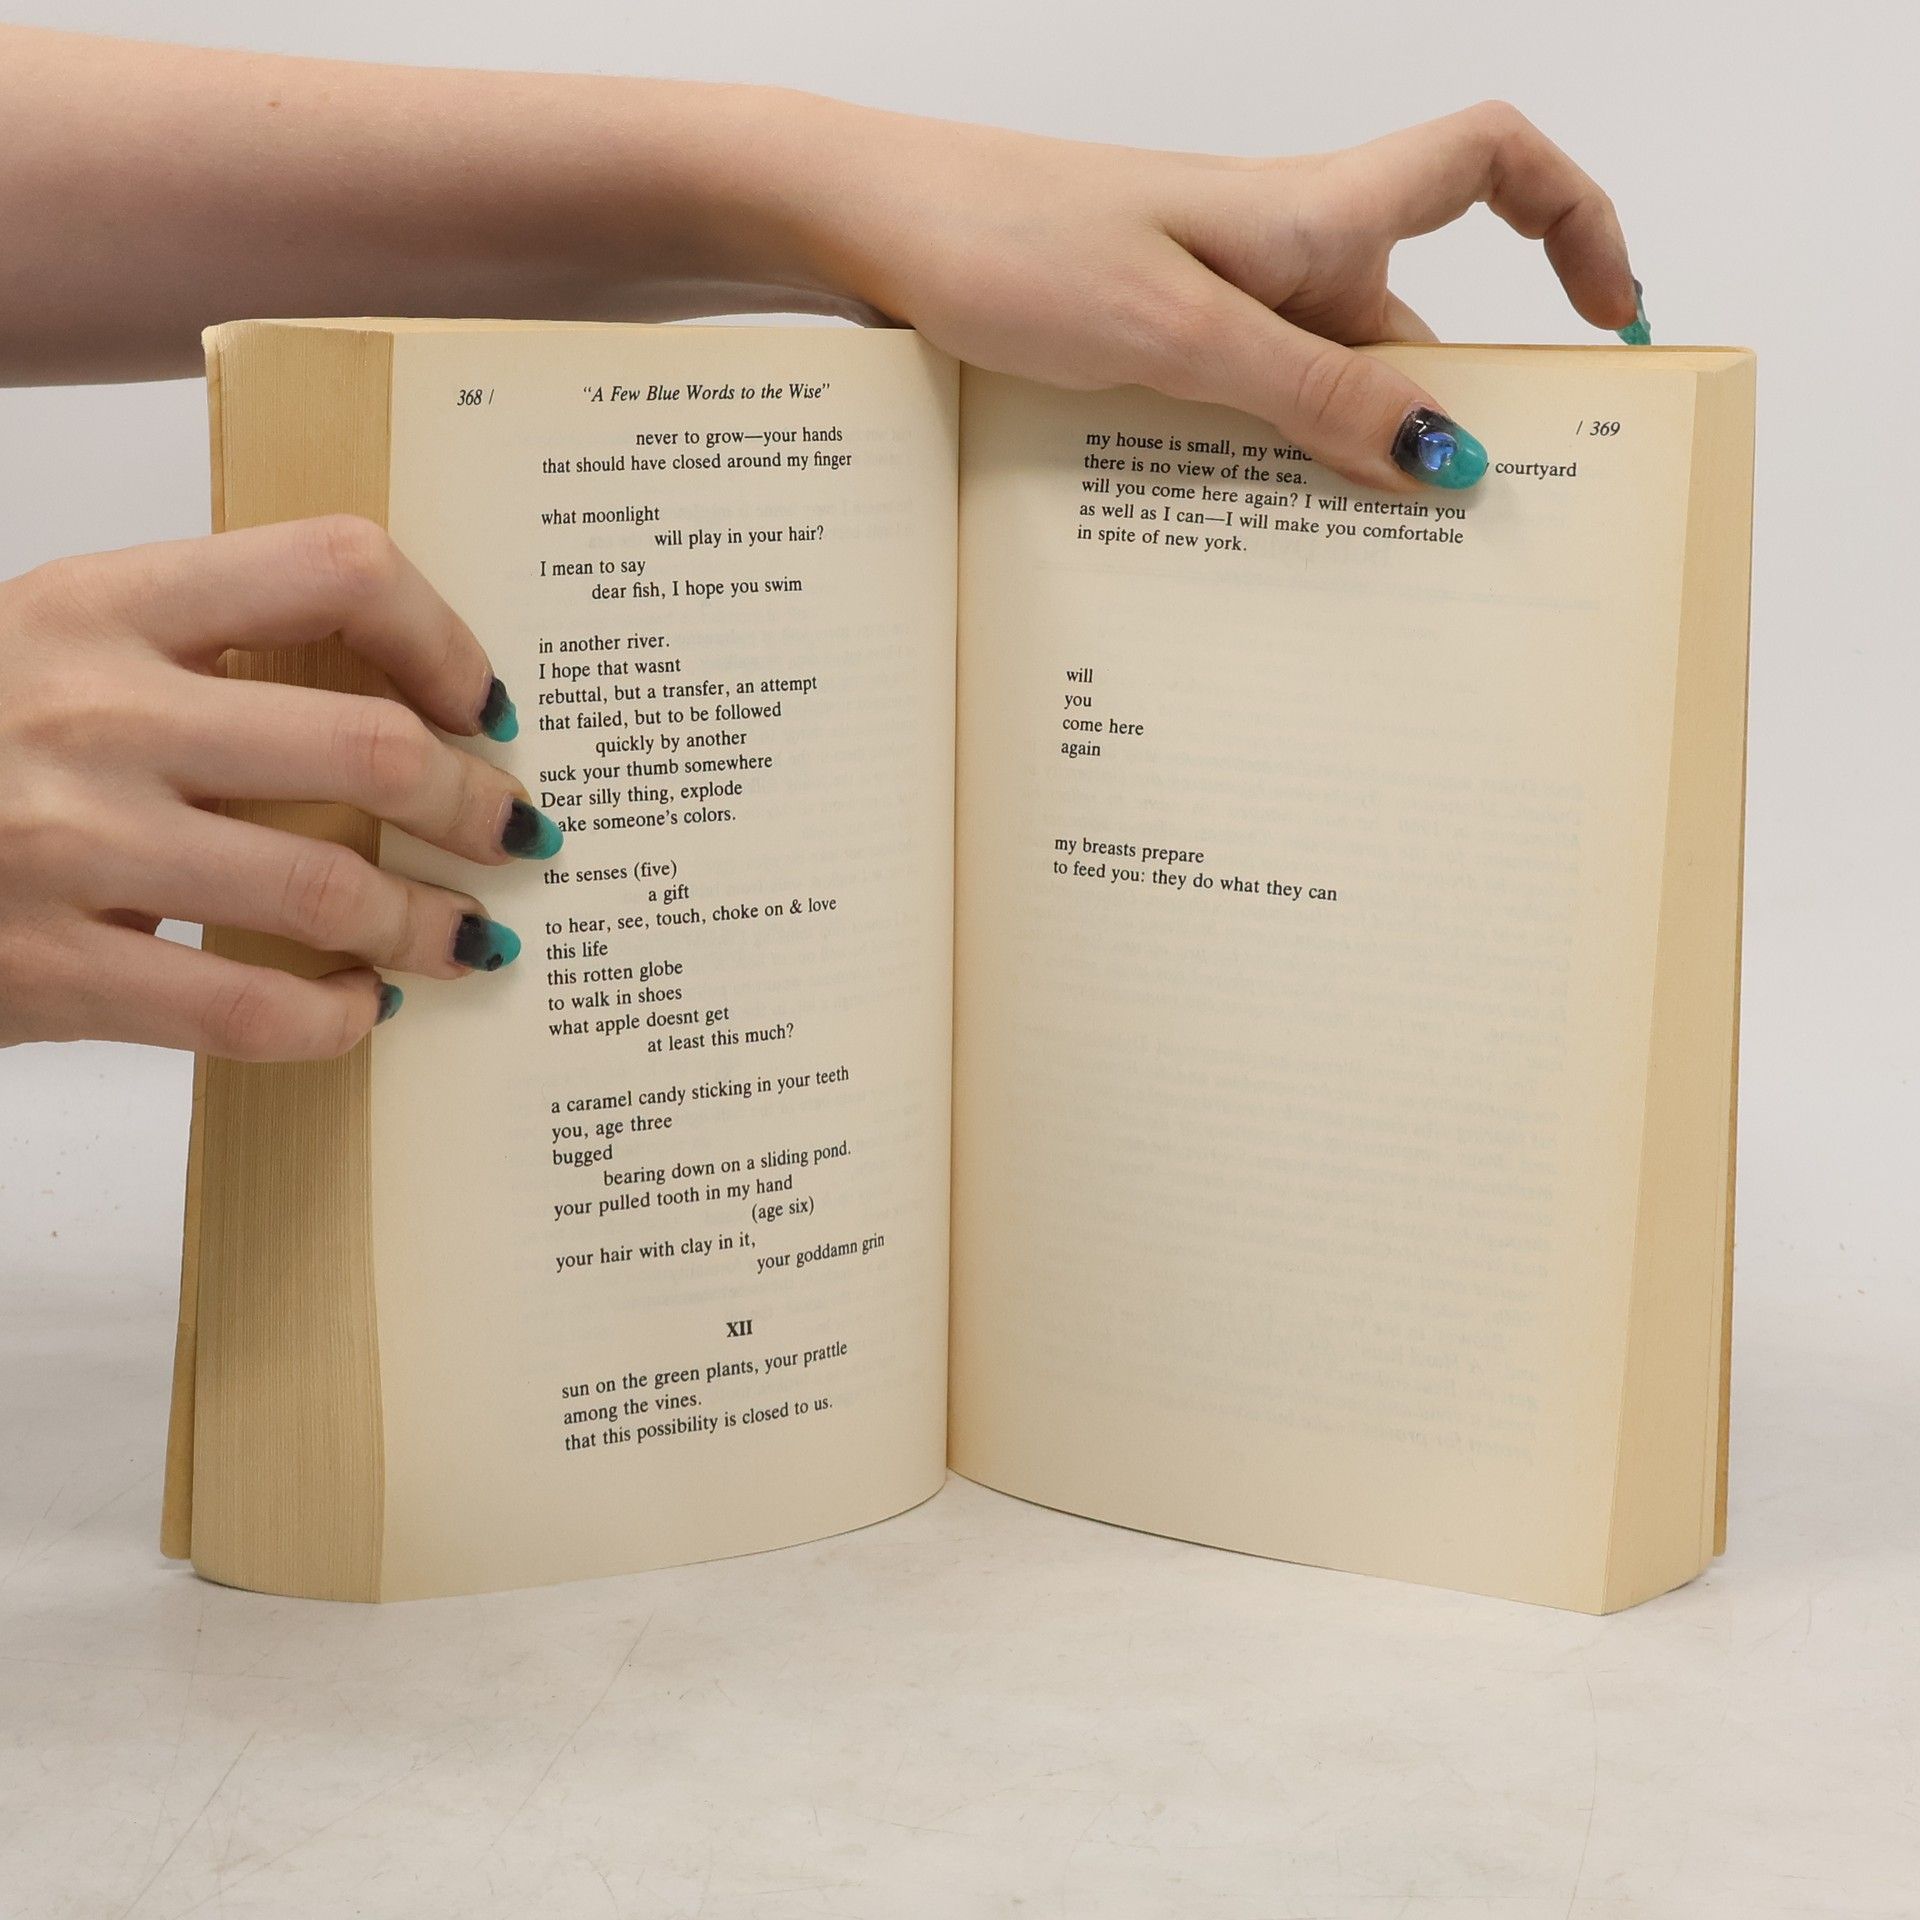 368 / "A Few Blue Words to the Wise"
never to grow—your hands
that should have closed around my finger
what moonlight
will play in your hair?
I mean to say
dear fish, I hope you swim
in another river.
I hope that wasnt
rebuttal, but a transfer, an attempt
that failed, but to be followed
quickly by another
suck your thumb somewhere
Dear silly thing, explode
someone's colors.
the senses (five)
a gift
to hear, see, touch, choke on & love
this life
this rotten globe
to walk in shoes
what apple doesnt get
at least this much?
a caramel candy sticking in your teeth
you, age three
bugged
bearing down on a sliding pond.
your pulled tooth in my hand
(age six)
your hair with clay in it,
your goddamn grin
XII
sun on the green plants, your prattle
among the vines.
that this possibility is closed to us.
/ 369
my house is small, my courtyard
there is no view of the sea.
will you come here again? I will entertain you
as well as I can—I will make you comfortable
in spite of new york.
will
you
come here
again
my breasts prepare
to feed you: they do what they can